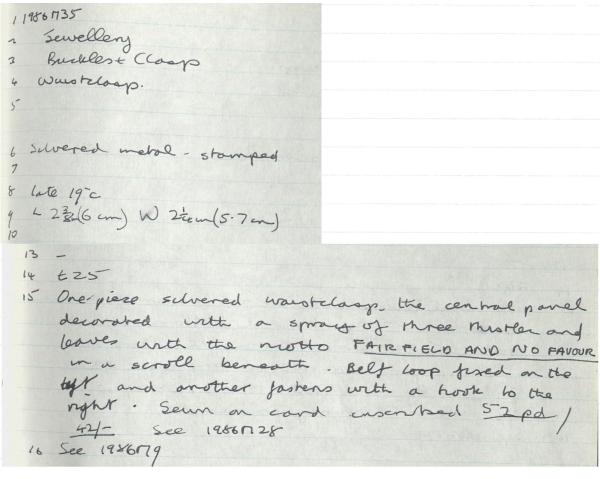 1 1986M35
2 Jewellery
3 Buckles + Clasp
4 Waistclasp.
5
6 Silvered metal - stamped
7
8 late 19thc
9 L 2 3/8in (6 cm) W 2 1/4in (5.7 cm)
10
13 -
14 £25
15 One-pieze silvered waistclasp, the central panel
decorated with a spray of three thistles and
leaves with the motto FAIR FIELD AND NO FAVOUR
in a scroll beneath. Belt loop fixed on the
left and another fastens with a hook to the
right. Sewn on card inscribed 52 pd/
42/- See 1986M28
16 See 1986M9